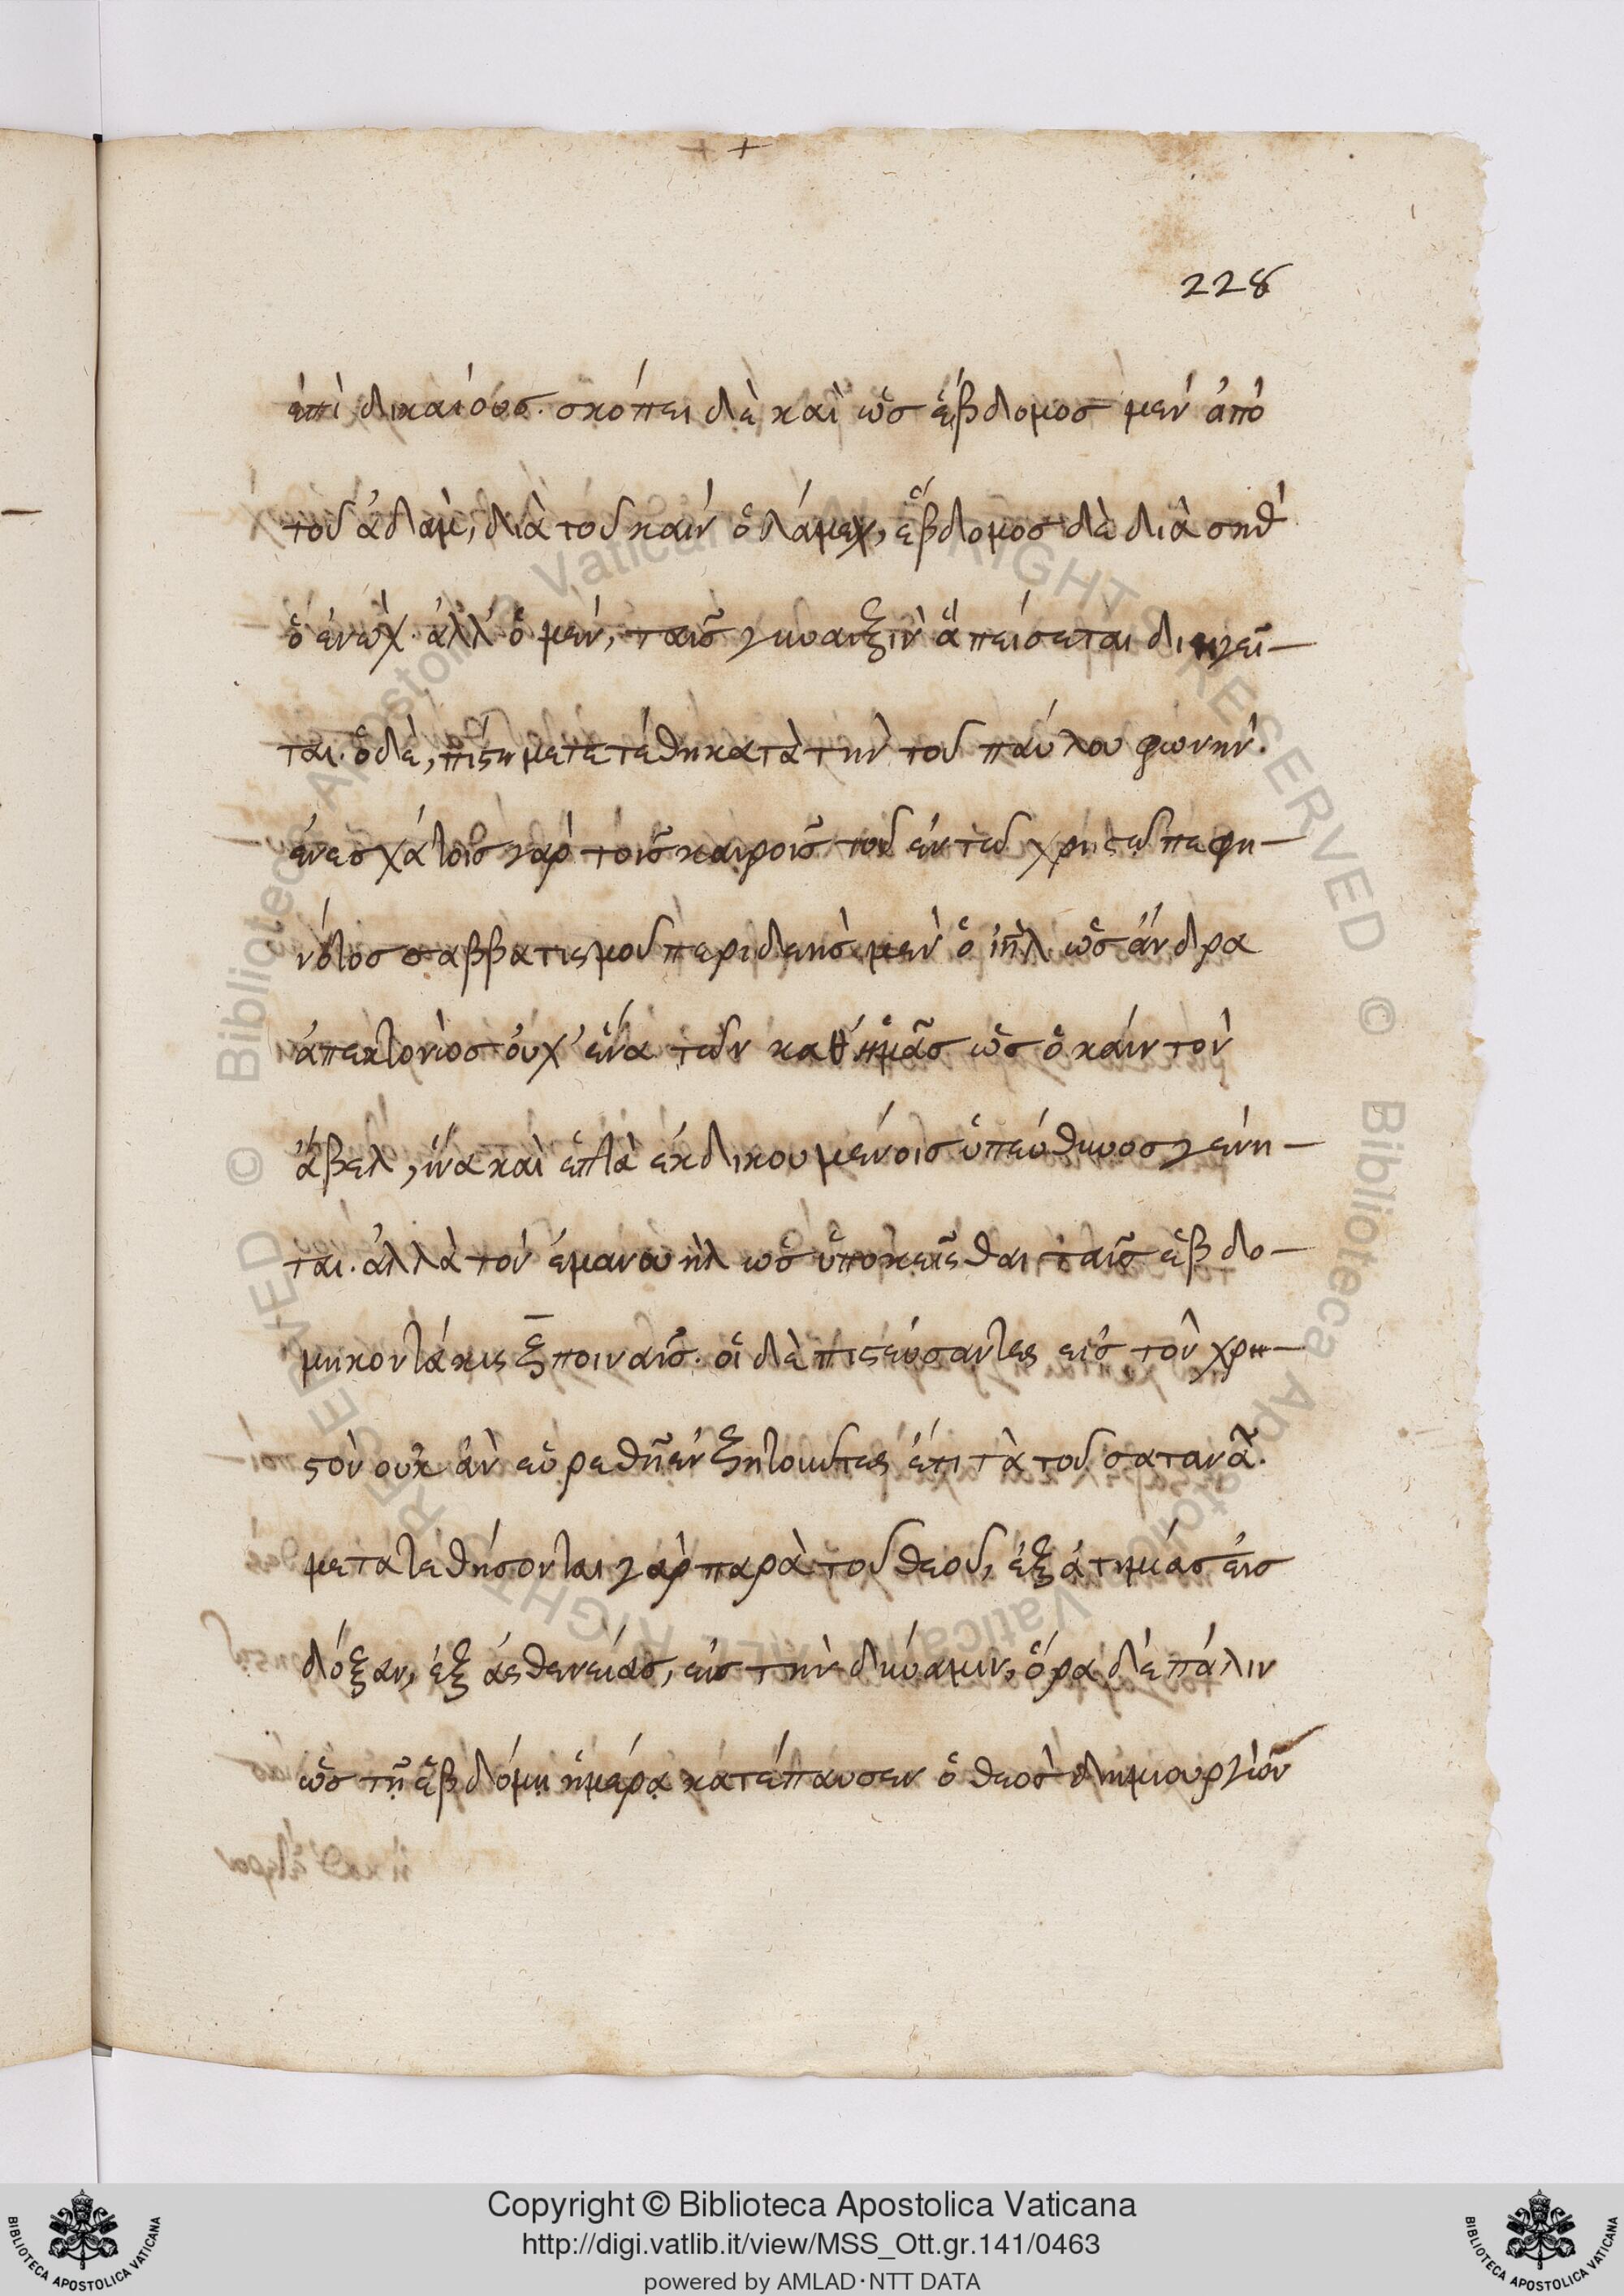 228
ἐπὶ δικαίους. σκόπει δὲ καὶ ὡς ἕβδομος μὲν ἀπὸ
τοῦ ἀδὰμ, διὰ τοῦ καὶν ὁ λάμεχ, ἕβδομος δὲ διὰ σὴθ
ὁ ἐνὼχ. ἀλλ' ὁ μὲν, ταῖς γυναιξὶν ἃ πείσεται διηγεῖ-
ται. ὁ δὲ, πίστη μετετέθη κατὰ τὴν τοῦ παύλου φωνήν.
ἐν ἐσχάτοις γὰρ τοῖς καιροῖς τοῦ ἐν τῶ χρηστῶ πεφη-
νότος σαββατισμοῦ περιδεὴς μὲν ὁ ἰηλ ὡς ἄνδρα
ἀπεκτονὼς οὐχ' ἕνα τῶν καθ' ἡμᾶς ὡς ὁ κάιν τὸν
ἄβελ, ἵνα καὶ ἑπτὰ ἐκδικουμένοις ὑπεύθυνος γένη-
ται. ἀλλὰ τὸν ἐμανουὴλ ὡς ὑποκεῖσθαι ταῖς ἑβδο-
μηκοντάκις ξ ποιναῖς. οἱ δὲ πιστεύσαντες εἰς τὸν χρη-
στὸν οὐκ ἂν εὑρεθῆεν ζητοῦντες ἐπι τὰ τοῦ σατανᾶ.
μετατεθήσονται γὰρ παρὰ τοῦ θεοῦ, ἐξ ἀτημίας εἰς
δόξαν, ἐξ ἀσθενείας, εἰς τὴν δύναμιν, ὅρα δὲ πάλιν
ὡς τῇ ἑβδόμῃ ἡμέρᾳ κατέπαυσεν ὁ θεὸς δημιουργιῶν
Copyright © Biblioteca Apostolica Vaticana
http://digi.vatlib.it/view/MSS_Ott.gr.141/0463
powered by AMLAD·NTT DATA